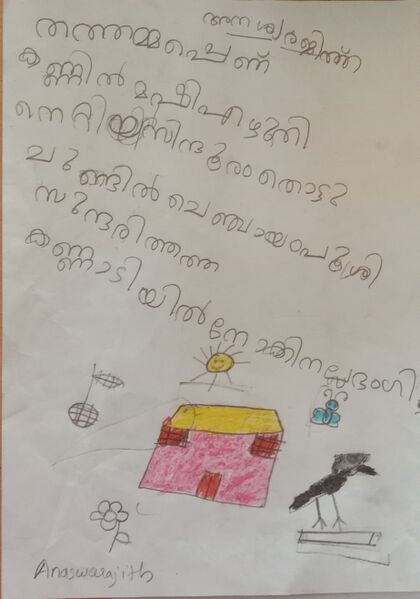 അനശ്വരജിത്ത്
തത്തമ്മപ്പെണ്
കണ്ണിൽ മഷിഎഴുതി
നെറ്റിയിസിന്ദൂരംതൊട്ടു
ചുണ്ടിൽ ചെഞ്ചായംപൂശി
സുന്ദരിത്തത്ത
കണ്ണാടിയിൽ നോക്കിന
Anaswarajith